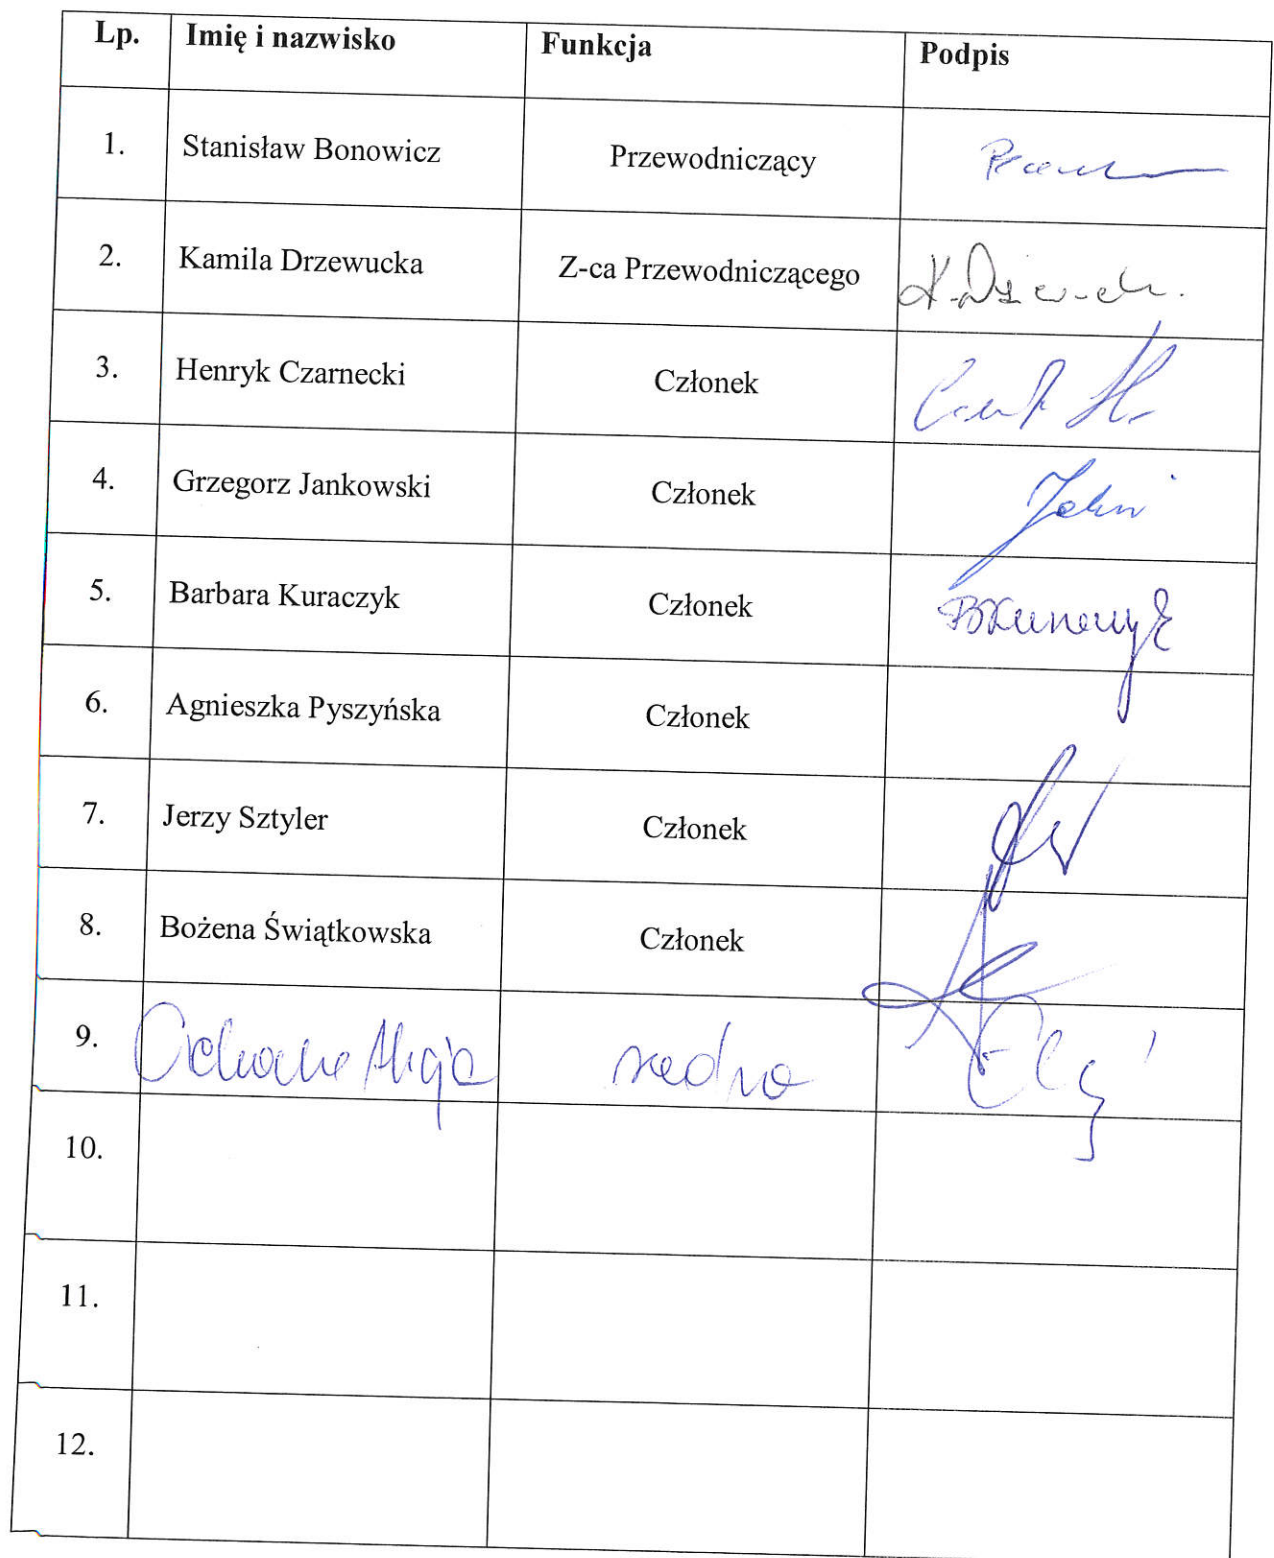 Lp. Imię i nazwisko Funkcja Podpis
1. Stanisław Bonowicz Przewodniczący
2. Kamila Drzewucka Z-ca Przewodniczącego
3. Henryk Czarnecki Członek
4. Grzegorz Jankowski Członek
5. Barbara Kuraczyk Członek
6. Agnieszka Pyszyńska Członek
7. Jerzy Sztyler Członek
8. Bożena Świątkowska Członek
9. Alicja
10.
11.
12.